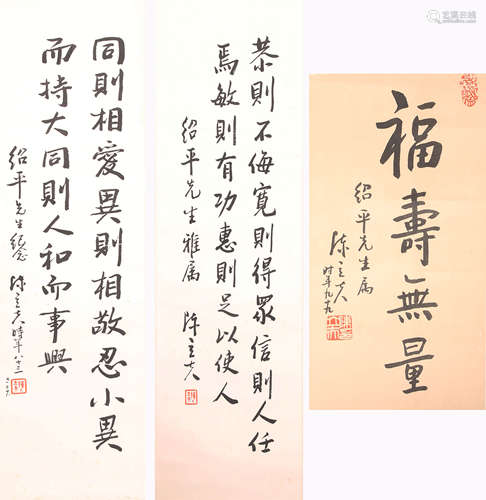 同則相愛異則相敬忍小異
而持大同則人和而事興
紹平先生紀念 陳立夫 時年八十三
恭則不侮寬則得眾信則人任
焉敏則有功惠則足以使人
紹平先生雅屬 陳立夫
福壽無量
紹平先生屬
陳立夫
時年九十九